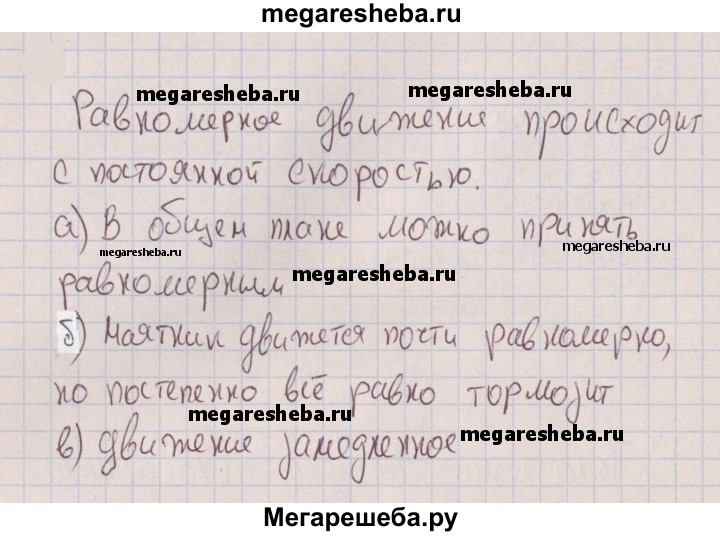 megaresheba.ru
megaresheba.ru megaresheba.ru
Равномерное движение происходит
с постоянной скоростью.
а) В общем плане можно принять
megaresheba.ru megaresheba.ru
равномерным megaresheba.ru
б) Маятник движется почти равномерно,
но постепенно всё равно тормозит
megaresheba.ru
в) движение замедленное megaresheba.ru
Мегарешеба.ру